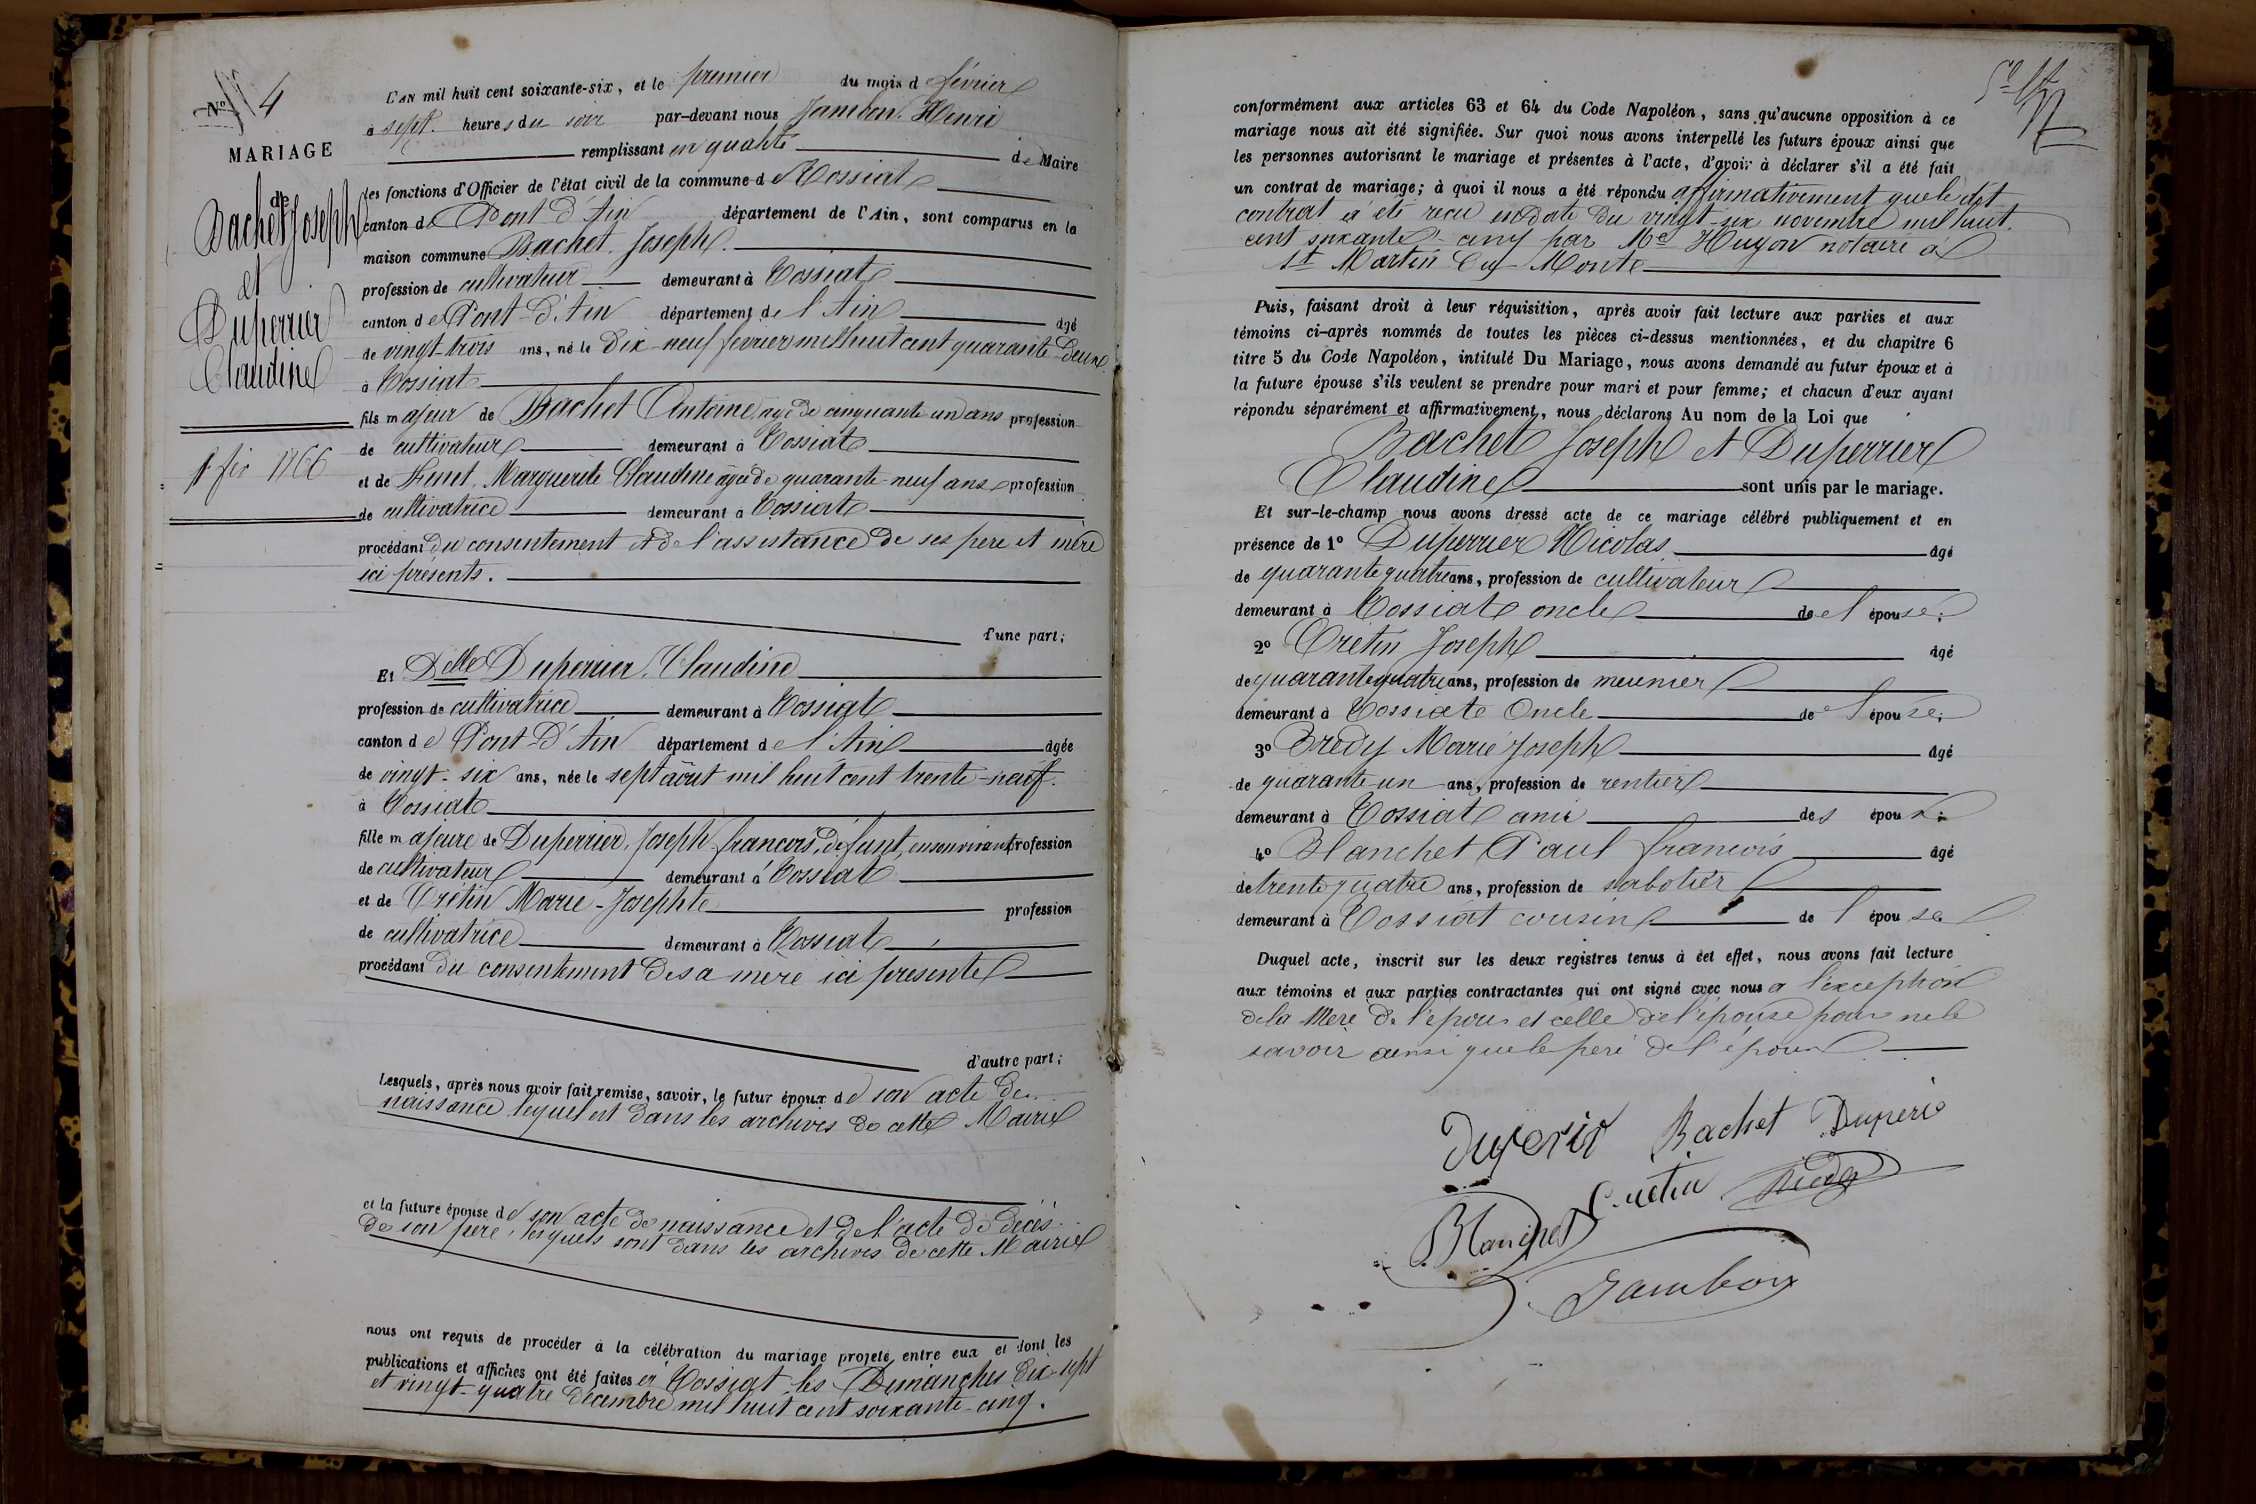 N° 4
MARIAGE
de
Bachet Joseph
et
Duperrier
Claudine
1er fév 1866
L'AN mil huit cent soixante-six, et le premier du mois d février
à sept heures du soir par-devant nous Jambon Henri
remplissant en qualité de Maire
les fonctions d'Officier de l'état civil de la commune d Tossiat
canton de Pont d'Ain département de l'Ain, sont comparus en la
maison commune Bachet Joseph
profession de cultivateur demeurant à Tossiat
canton de Pont-d'Ain département de l'Ain âgé
de vingt-trois ans, né le dix-neuf février mil huit cent quarante-deux
à Tossiat
fils majeur de Bachet Antoine âgé de cinquante un ans profession
de cultivateur demeurant à Tossiat
et de Marguerite Claudine âgée de quarante-neuf ans profession
de cultivatrice demeurant à Tossiat
procédant du consentement et de l'assistance de ses père et mère
ici présents.
d'une part;
Et Delle Duperrier Claudine
profession de cultivatrice demeurant à Tossiat
canton de Pont-d'Ain département de l'Ain âgée
de vingt-six ans, née le sept août mil huit cent trente-neuf
à Tossiat
fille majeure de Duperrier Joseph françois, défunt, en son vivant profession
de cultivateur demeurant à Tossiat
et de Crétin Marie-Josephte profession
de cultivatrice demeurant à Tossiat
procédant du consentement de sa mère ici présente
d'autre part;
Lesquels, après nous avoir fait remise, savoir, le futur époux de son acte de
naissance lequel est dans les archives de cette Mairie
et la future épouse de son acte de naissance et de l'acte de décès
de son père, lesquels sont dans les archives de cette Mairie
nous ont requis de procéder à la célébration du mariage projeté entre eux et dont les
publications et affiches ont été faites à Tossiat les Dimanches dix-sept
et vingt-quatre décembre mil huit cent soixante-cinq.
conformément aux articles 63 et 64 du Code Napoléon, sans qu'aucune opposition à ce
mariage nous ait été signifiée. Sur quoi nous avons interpellé les futurs époux ainsi que
les personnes autorisant le mariage et présentes à l'acte, d'avoir à déclarer s'il a été fait
un contrat de mariage; à quoi il nous a été répondu affirmativement que le dit
contrat a été reçu en date du vingt-six novembre mil huit
cent soixante-cinq par Me Huyon notaire à
St Martin du Monte
Puis, faisant droit à leur réquisition, après avoir fait lecture aux parties et aux
témoins ci-après nommés de toutes les pièces ci-dessus mentionnées, et du chapitre 6
titre 5 du Code Napoléon, intitulé Du Mariage, nous avons demandé au futur époux et à
la future épouse s'ils veulent se prendre pour mari et pour femme; et chacun d'eux ayant
répondu séparément et affirmativement, nous déclarons Au nom de la Loi que
Bachet Joseph et Duperrier
Claudine sont unis par le mariage.
Et sur-le-champ nous avons dressé acte de ce mariage célébré publiquement et en
présence de 1° Duperrier Nicolas âgé
de quarante quatre ans, profession de cultivateur
demeurant à Tossiat oncle de l épouse;
2° Crétin Joseph âgé
de quarante quatre ans, profession de meunier
demeurant à Tossiate Oncle de l épouse;
3° Bredy Marie Joseph âgé
de quarante un ans, profession de rentier
demeurant à Tossiat ami des époux;
4° Blanchet Paul francois âgé
de trente quatre ans, profession de sabotier
demeurant à Tossiat cousin de l épouse
Duquel acte, inscrit sur les deux registres tenus à cet effet, nous avons fait lecture
aux témoins et aux parties contractantes qui ont signé avec nous a l'exception
de la Mère de l'époux et celle de l'épouse pour ne le
savoir ainsi que le père de l'époux
Duperir Bachet Duperié
Cretin Bredy
Blanchet
Jambon